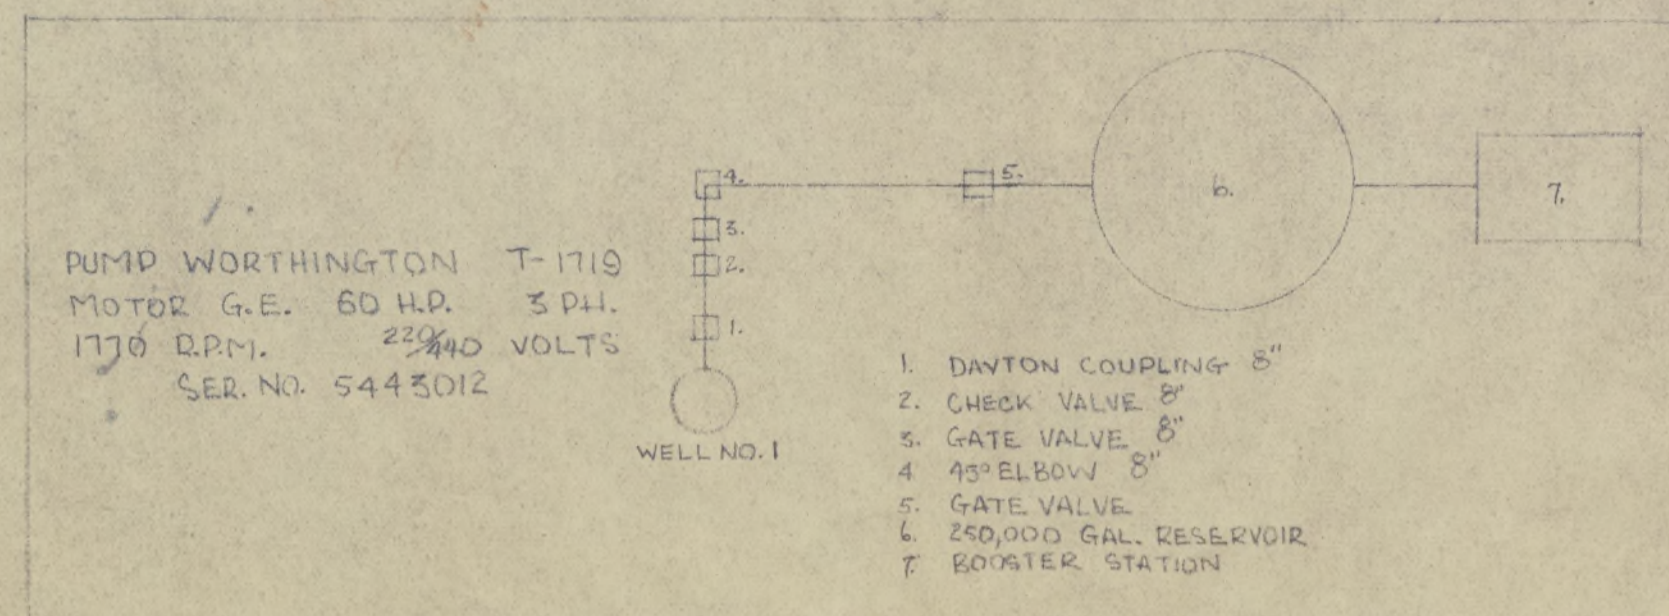 PUMP WORTHINGTON T-1719
MOTOR G.E. 60 H.P. 3 PH.
1770 R.P.M. 220/440 VOLTS
SER. NO. 5443012
4.
5.
3.
2.
1.
6.
7.
WELL NO. 1
1. DAYTON COUPLING 8"
2. CHECK VALVE 8"
3. GATE VALVE 8"
4 45° ELBOW 8"
5. GATE VALVE
6. 250,000 GAL. RESERVOIR
7. BOOSTER STATION